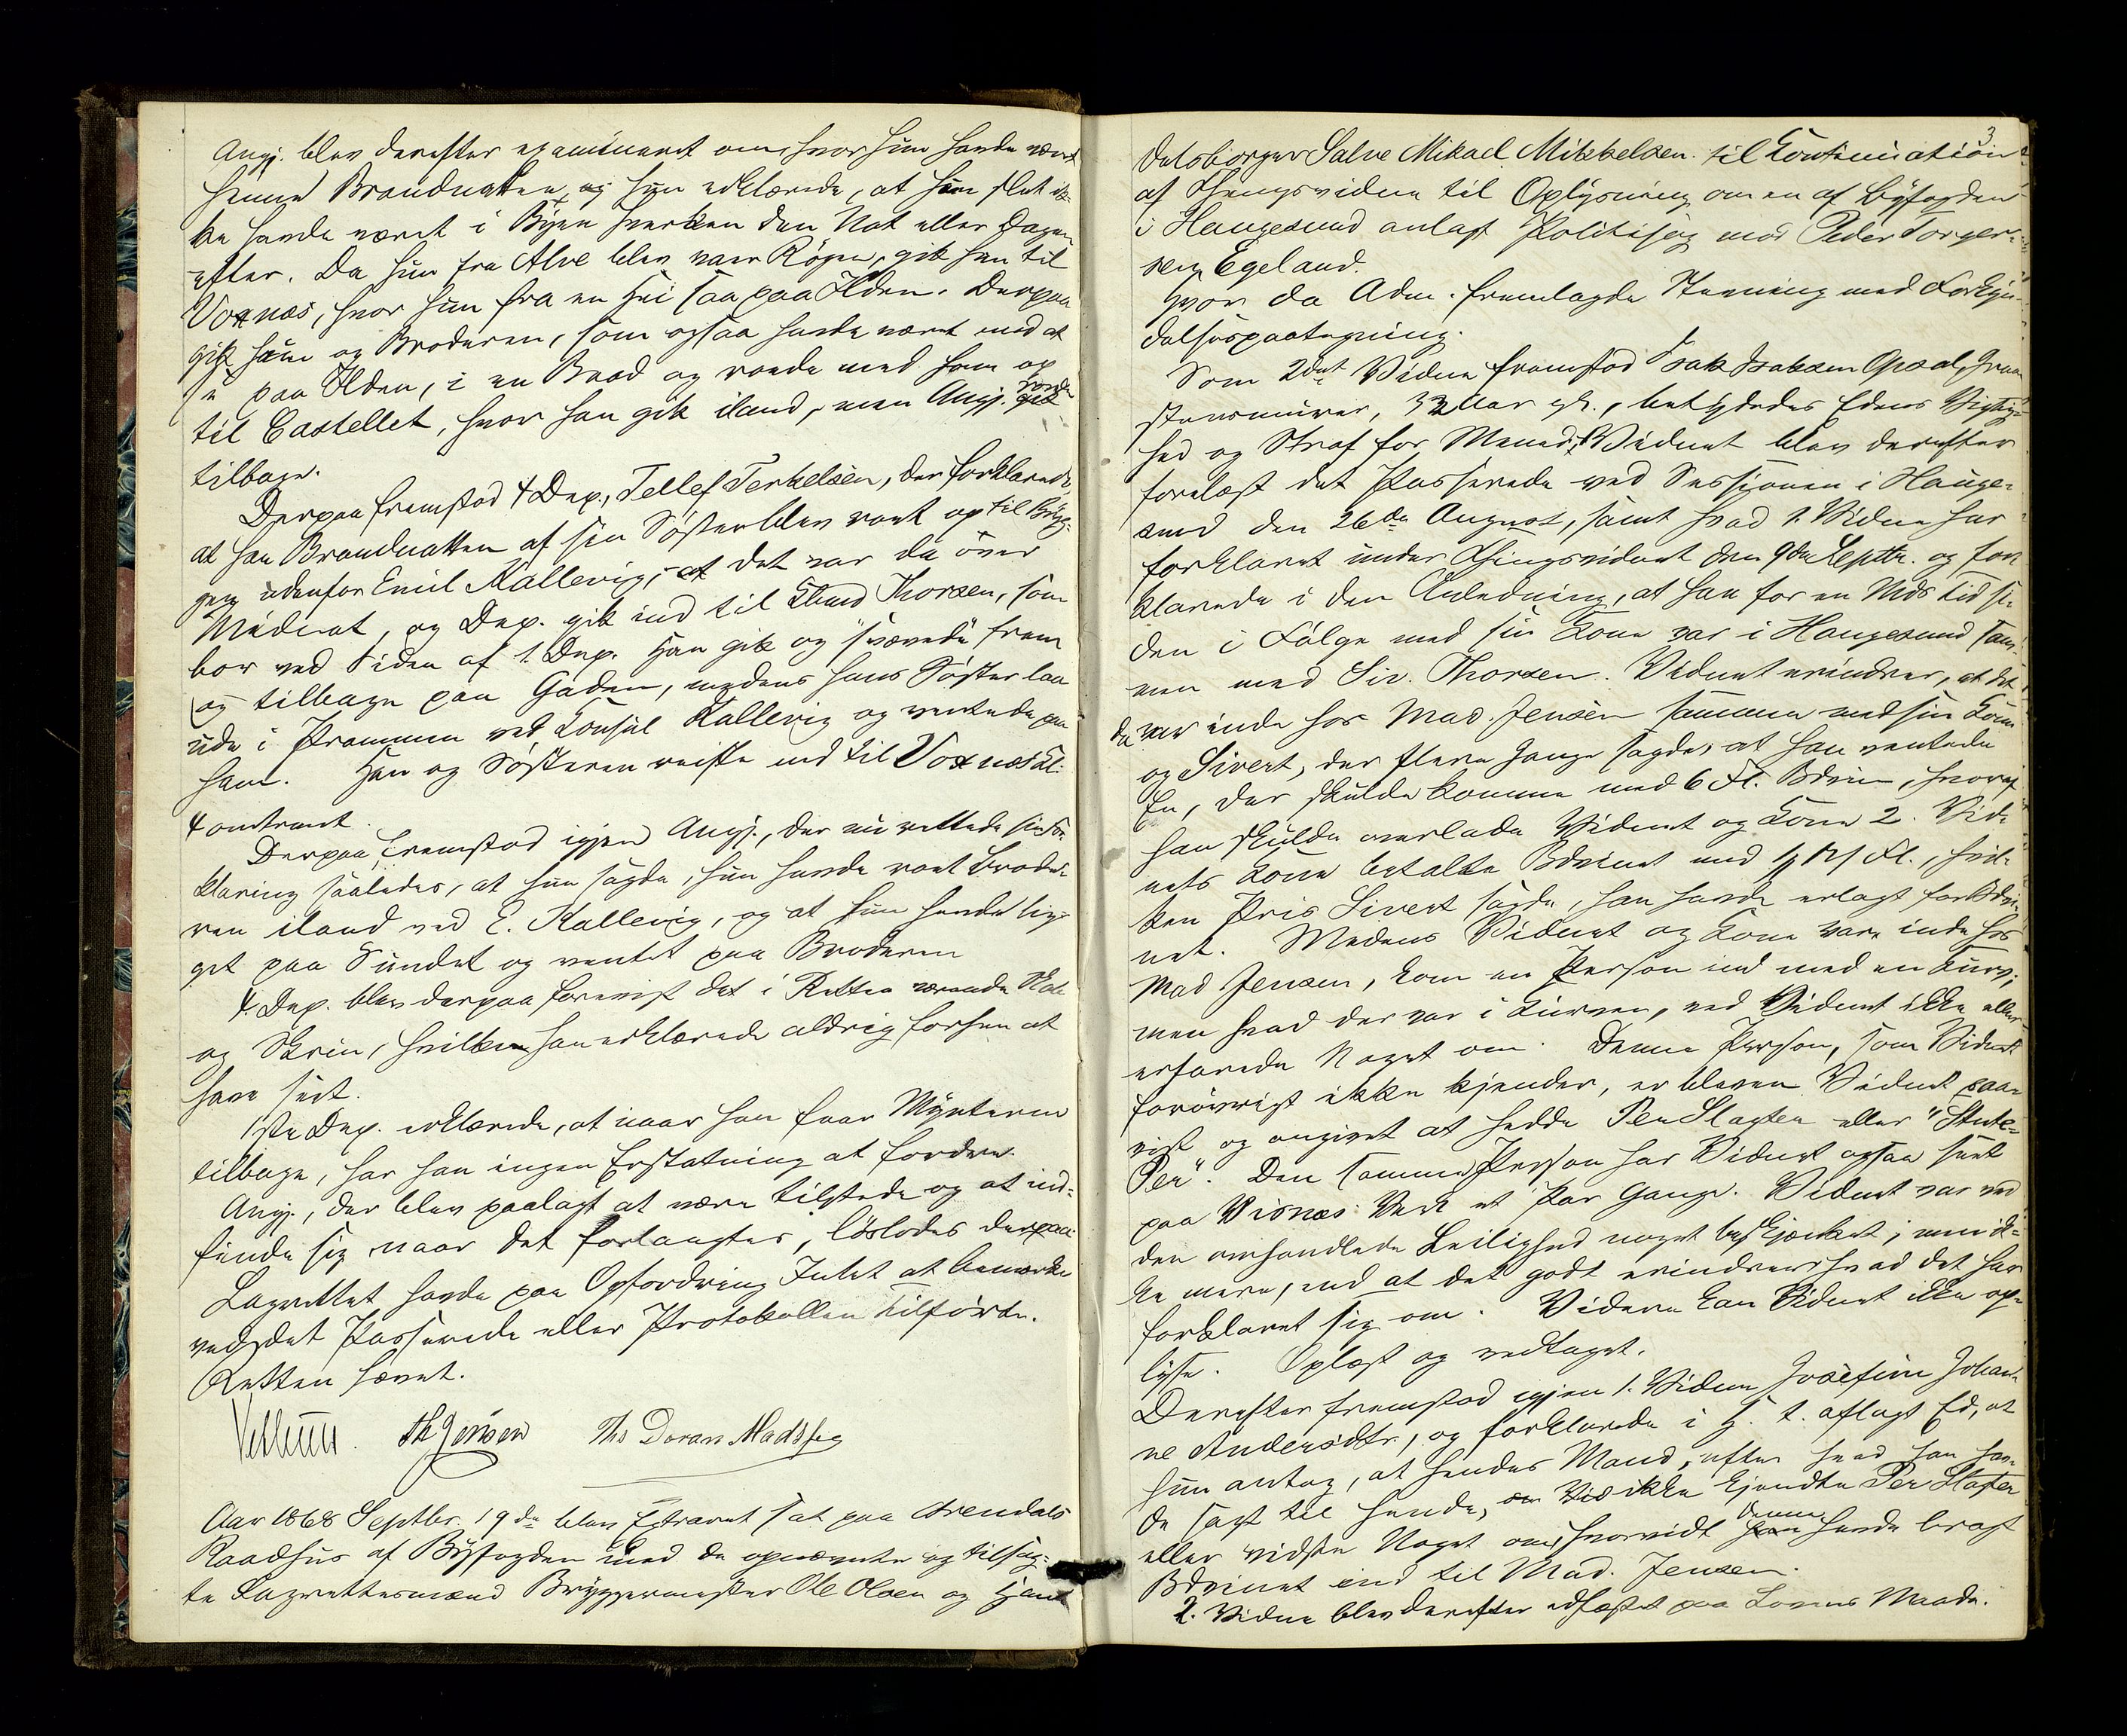 Angj. blev derefter examineret om, hvor hun havde været
henne Brandnatten, og hun erklærede, at hun slet ik-
ke havde været i Byen hverken den Nat eller Dagen
efter. Da hun fra Alve blev vaer Røgen, gik hun til
Voxnæs, hvor hun fra en Hei saa paa Ilden. Derpaa
gik hun og Broderen, som ogsaa havde været med at
se paa Ilden, i en Baad og roede med ham op
til Castellet, hvor han gik iland, men Angj. roede
tilbage.
Derpaa fremstod 4 Dep., Tellef Terkelsen, der forklarede,
at han Brandnatten af sin Søster blev roet op til Bryg-
gen udenfor Emil Kallevig, at det var da over
Midnat, og Dep. gik ind til Thorsen, som
bor ved Siden af 1. Dep. Han gik og "svævede" frem
og tilbage paa Gaden, medens hans Søster laa
ude i Prammen ved Konsul Kallevig og ventede paa
ham. Han og Søsteren reiste ned til Voxnæs Kl.
4 omtrent.
Derpaa fremstod igjen Angj., der nu rettede sin For-
klaring saaledes, at hun sagde, hun havde roet Brode-
ren iland ved E. Kallevig, og at hun havde lig-
get paa Sundet og ventet paa Broderen
4. Dep. blev derpaa forevist det i Retten værende
og Skrin, hvilke han erklærede aldrig forhen at
have seet.
1ste Dep. erklærede, at naar han faar Mynterne
tilbage, har han ingen Erstatning at fordre.
Angj., der blev paalagt at være tilstede og at ind-
finde sig naar det forlangtes, løslodes derpaa.
Lagrettet havde paa Opfordring Intet at bemærke
ved det Passerede eller Protokollen Tilførte.
Retten hævet.
Th Jensen Ths Doran Madssen
Aar 1868 Septbr. 19de blev Extraret sat paa Arendals
Raadhus af Byfogden med de opnævnte og tilsag-
te Lagrettesmænd Bryggermester Ole Olsen og Han-
3
delsborger Salve Mikael Mikkelsen til Kontinuation
af Thingsvidne til Oplysning om en af Byfogden
i Haugesund anlagt Politisag mod Peder Torger-
sen Egeland.
Hvor da Adm. fremlagde Stevning med Forkyn-
delsespaategning.
Som 2det Vidne fremstod Isak Isaksen Opsal, Graa-
stensmurer, 32 Aar gl., betydedes Edens Vigtig-
hed og Straf for Mened. Vidnet blev derefter
forelæst det Passerede ved Sessionen i Hauge-
sund den 26de August, samt hvad 1. Vidne har
forklaret under Thingsvidnet den 9de Septbr. og for-
klarede i den Anledning, at han for en Mds Tid si-
den i Følge med sin Kone var i Haugesund sam-
men med Siv. Thorsen. Vidnet erindrer, at det
da var inde hos Mad. Jensen sammen med sin Kone
og Sivert, der flere Gange sagde, at han ventede
En, der skulde komme med 6 Fl. Bdvin, hvoraf
han skulde overlade Vidnet og Kone 2. Vid-
nets Kone betalte Bdvinet med Fl., hvil-
ken Pris Sivert sagde, han havde erlagt for Bdvi-
net. Medens Vidnet og Kone vare inde hos
Mad Jensen, kom en Person ind med en Kurv;
men hvad der var i Kurven, ved Vidnet ikke eller
erfarede Noget om. Denne Person, som Vidnet
forøvrigt ikke kjender, er bleven Vidnet paa-
vist og angivet at hedde Per Slagter eller "Stute-
Per". Den samme Person har Vidnet ogsaa seet
paa Visnæs Værk et Par Gange. Vidnet var ved
den omhandlede Leilighed noget beskjænket; men ik-
ke mere, end at det godt erindrer hvad det har
forklaret sig om. Videre kan Vidnet ikke op-
lyse. Oplæst og vedtaget.
Derefter fremstod igjen 1. Vidne Josefine Johan-
ne Andersdtr., og forklarede i H. t. aflagt Ed, at
hun antog, at hendes Mand, efter hvad han hav-
de sagt til hende, ikke kjendte Per Slagter
eller vidste Noget om, hvorvidt denne havde bragt
Bdvinet ind til Mad. Jensen.
2. Vidne blev derefter edfæstet paa Lovens Maade.